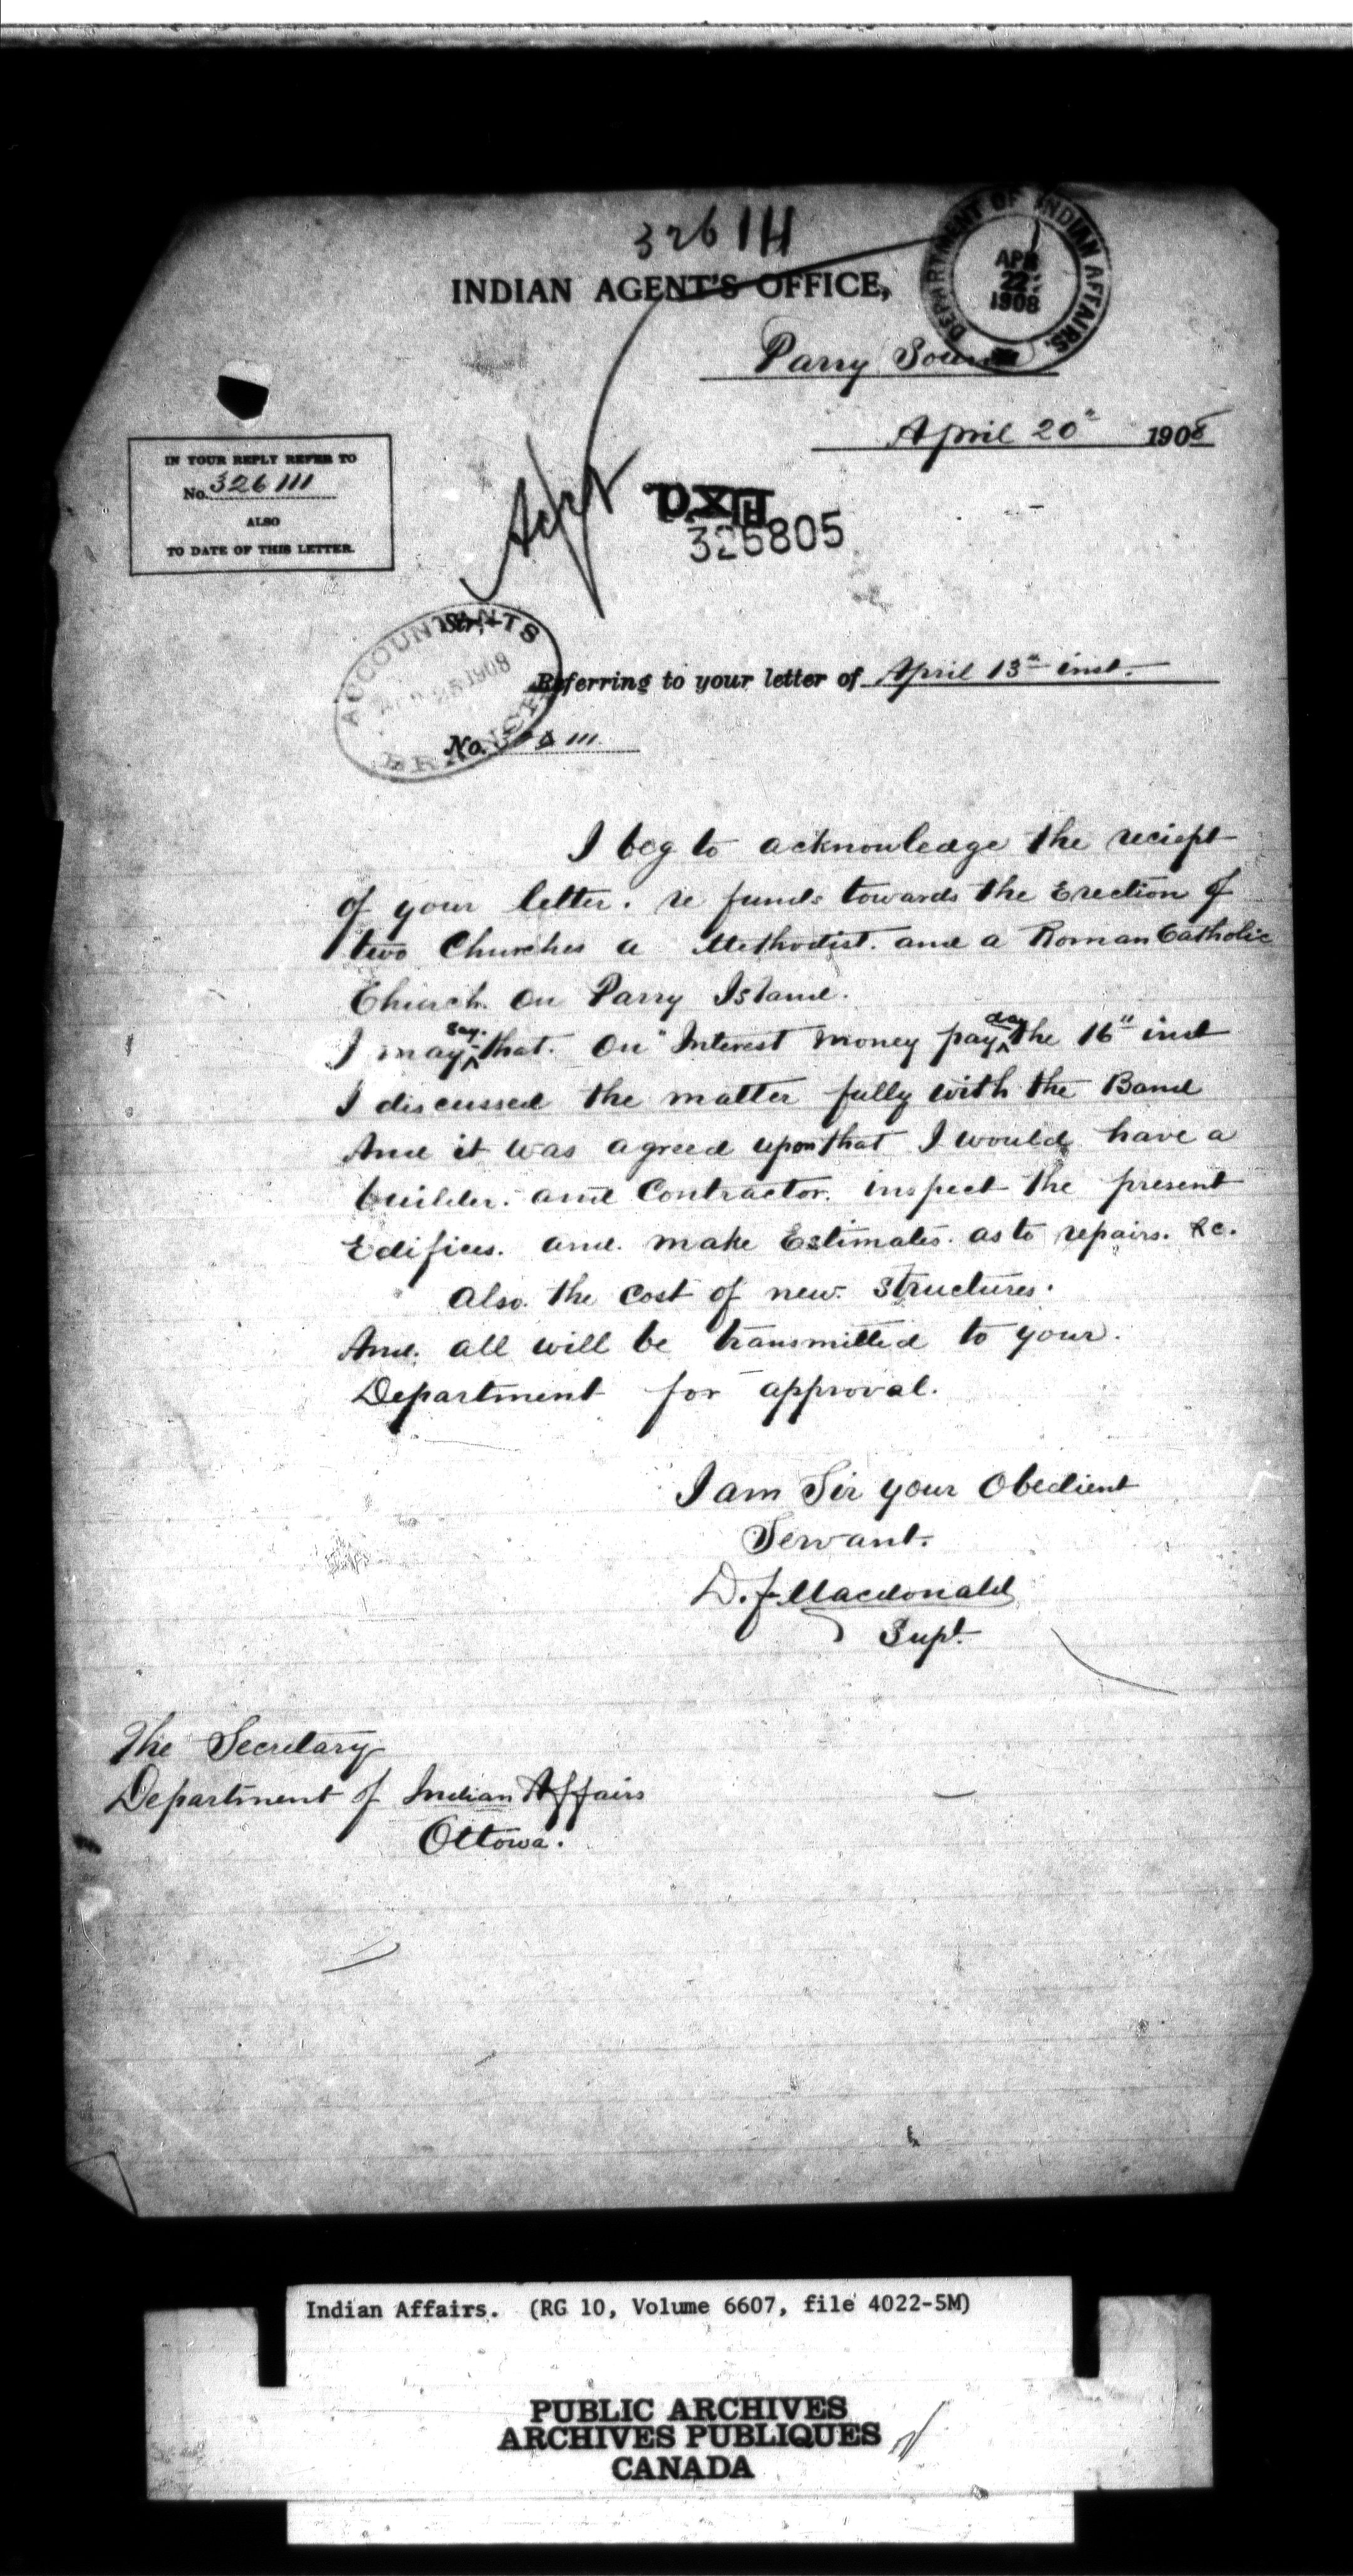 326111
INDIAN AGENT'S OFFICE,
DEPARTMENT OF INDIAN AFFAIRS.
APR
22
1908
Parry Sound
April 20" 1908
IN YOUR REPLY REFER TO
No. 326111
ALSO
TO DATE OF THIS LETTER.
325805
ACCOUNTANTS
1908
BRANCH
Sir,
Referring to your letter of April 13" inst.
No.
I beg to acknowledge the reciept
of your letter. re funds towards the Erection of
two Churches a Methodist. and a Roman Catholic
Church. On Parry Island.
I may say. that. On "Interest money pay day the 16" inst
I discussed the matter fully with the Band
And it was agreed upon that I would have a
builder. and Contractor. inspect the present
Edifices. and. make Estimates. as to repairs. &c.
Also. the cost of new. Structures.
And. all will be transmitted to your.
Department for approval.
I am Sir your Obedient
Servant.
D. F. Macdonald
Supt.
The Secretary
Department of Indian Affairs
Ottowa.
Indian Affairs. (RG 10, Volume 6607, file 4022-5M)
PUBLIC ARCHIVES
ARCHIVES PUBLIQUES
CANADA